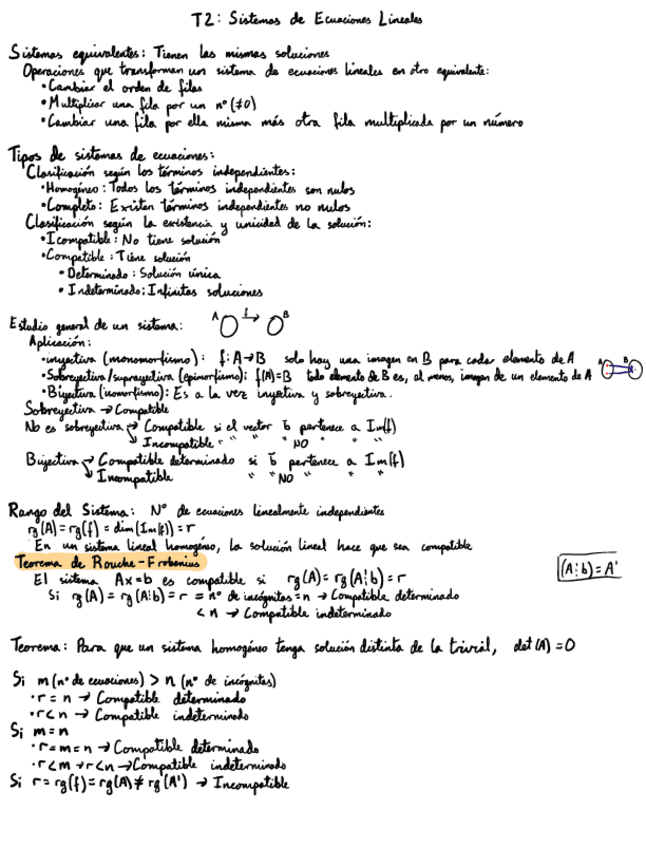 T2: Sistemas de Ecuaciones Lineales
Sistemas equivalentes: Tienen las mismas soluciones
Operaciones que transforman un sistema de ecuaciones lineales en otro equivalente:
• Cambiar el orden de filas
• Multiplicar una fila por un nº (≠0)
• Cambiar una fila por ella misma más otra fila multiplicada por un número
Tipos de sistemas de ecuaciones:
Clasificación según los términos independientes:
• Homogéneo: Todos los términos independientes son nulos
• Completo: Existen términos independientes no nulos
Clasificación según la existencia y unicidad de la solución:
• Icompatible: No tiene solución
• Compatible: Tiene solución
• Determinado: Solución única
• Indeterminado: Infinitas soluciones
Estudio general de un sistema: A f → B
Aplicación:
• inyectiva (monomorfismo): f: A→B solo hay una imagen en B para cada elemento de A
• Sobreyectiva/suprayectiva (epimorfismo): f(A)=B todo elemento de B es, al menos, imagen de un elemento de A A B
• Biyectiva (isomorfismo): Es a la vez inyectiva y sobreyectiva.
Sobreyectiva → Compatible
No es sobreyectiva → Compatible si el vector b pertenece a Im(f)
↘ Incompatible " " " " NO " " "
Biyectiva → Compatible determinado si b pertenece a Im(f)
↘ Incompatible " " NO " " "
Rango del Sistema: Nº de ecuaciones linealmente independientes
rg(A)=rg(f)=dim(Im(f))=r
En un sistema lineal homogéneo, la solución lineal hace que sea compatible
Teorema de Rouche-Frobenius
El sistema Ax=b es compatible si rg(A)=rg(A¦b)=r
(A¦b)=A'
Si rg(A)=rg(A¦b)=r = nº de incógnitas=n → Compatible determinado
< n → Compatible indeterminado
Teorema: Para que un sistema homogéneo tenga solución distinta de la trivial, det(A)=0
Si m (nº de ecuaciones) > n (nº de incógnitas)
• r=n → Compatible determinado
• r<n → Compatible indeterminado
Si m=n
• r=m=n → Compatible determinado
• r<m → r<n → Compatible indeterminado
Si r=rg(f)=rg(A)≠rg(A') → Incompatible